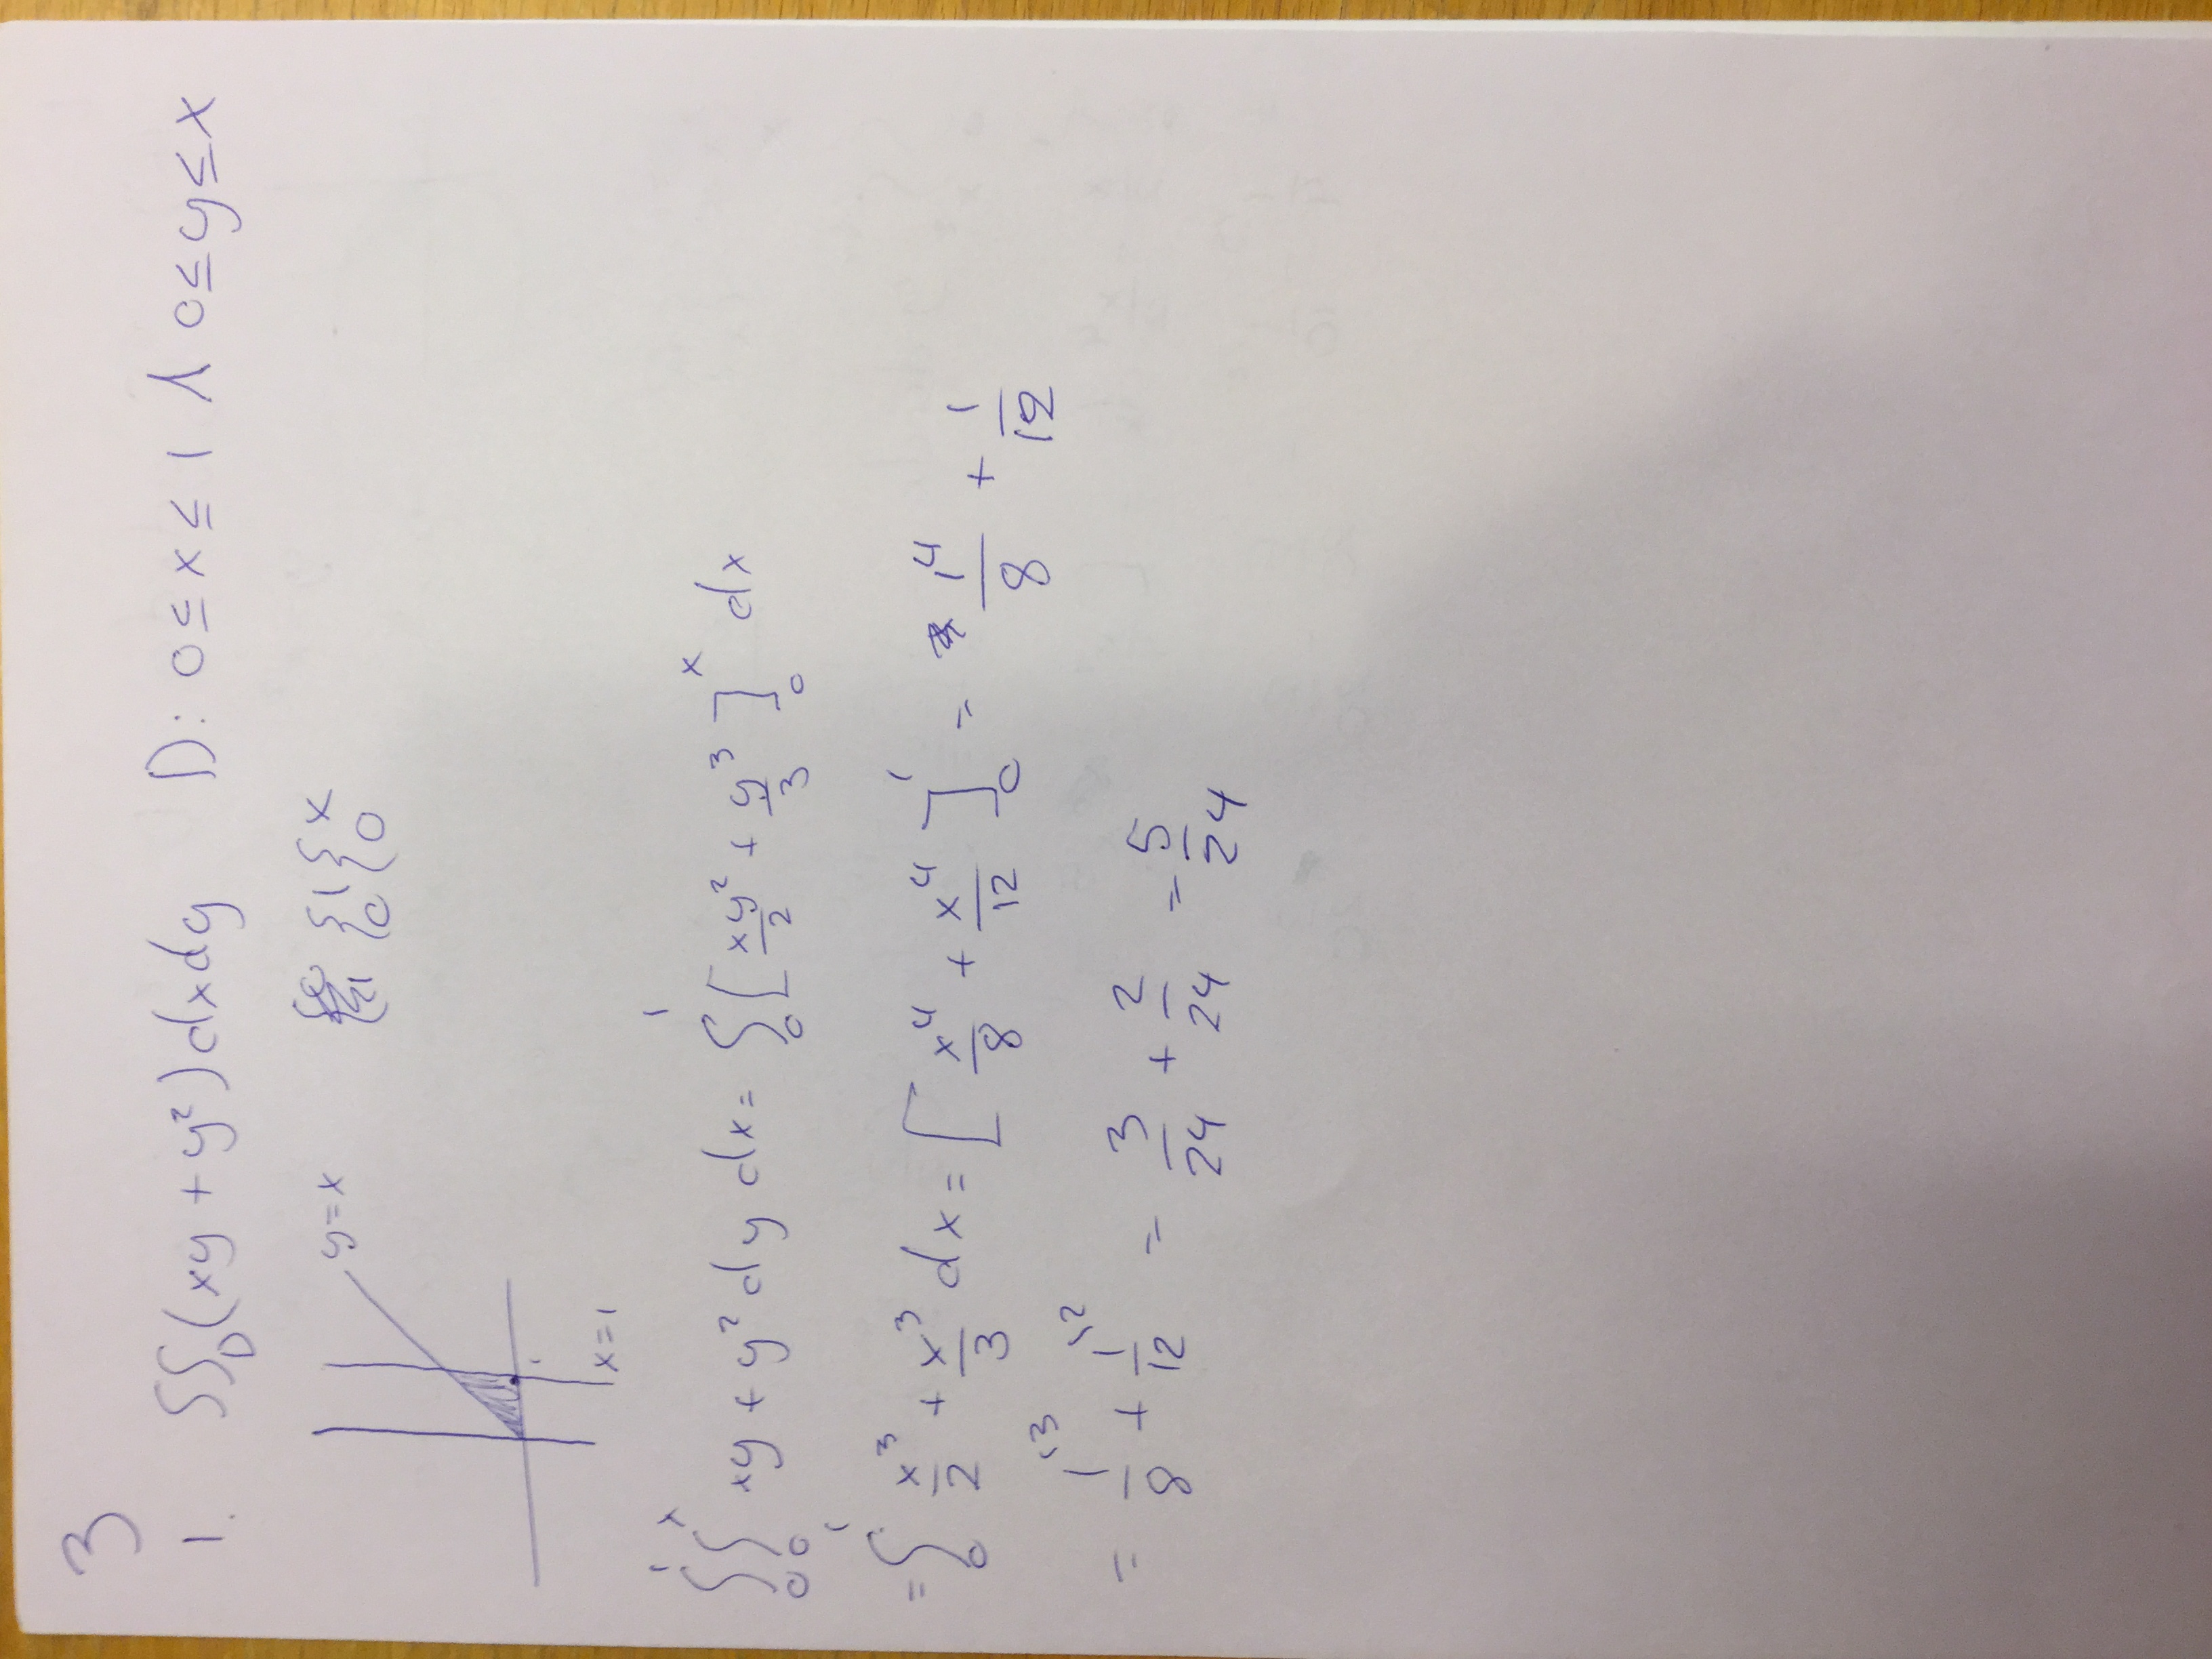 3
1. ∫∫_D (xy + y²) dxdy D: 0 ≤ x ≤ 1 ∧ 0 ≤ y ≤ x
∫_0^1 ∫_0^x
y=x
x=1
∫_0^1 ∫_0^x xy + y² dy dx = ∫_0^1 [xy²/2 + y³/3]_0^x dx
= ∫_0^1 x³/2 + x³/3 dx = [x⁴/8 + x⁴/12]_0^1 = 1⁴/8 + 1/12
= 1/8 ^{13} + 1/12 ^{12} = 3/24 + 2/24 = 5/24